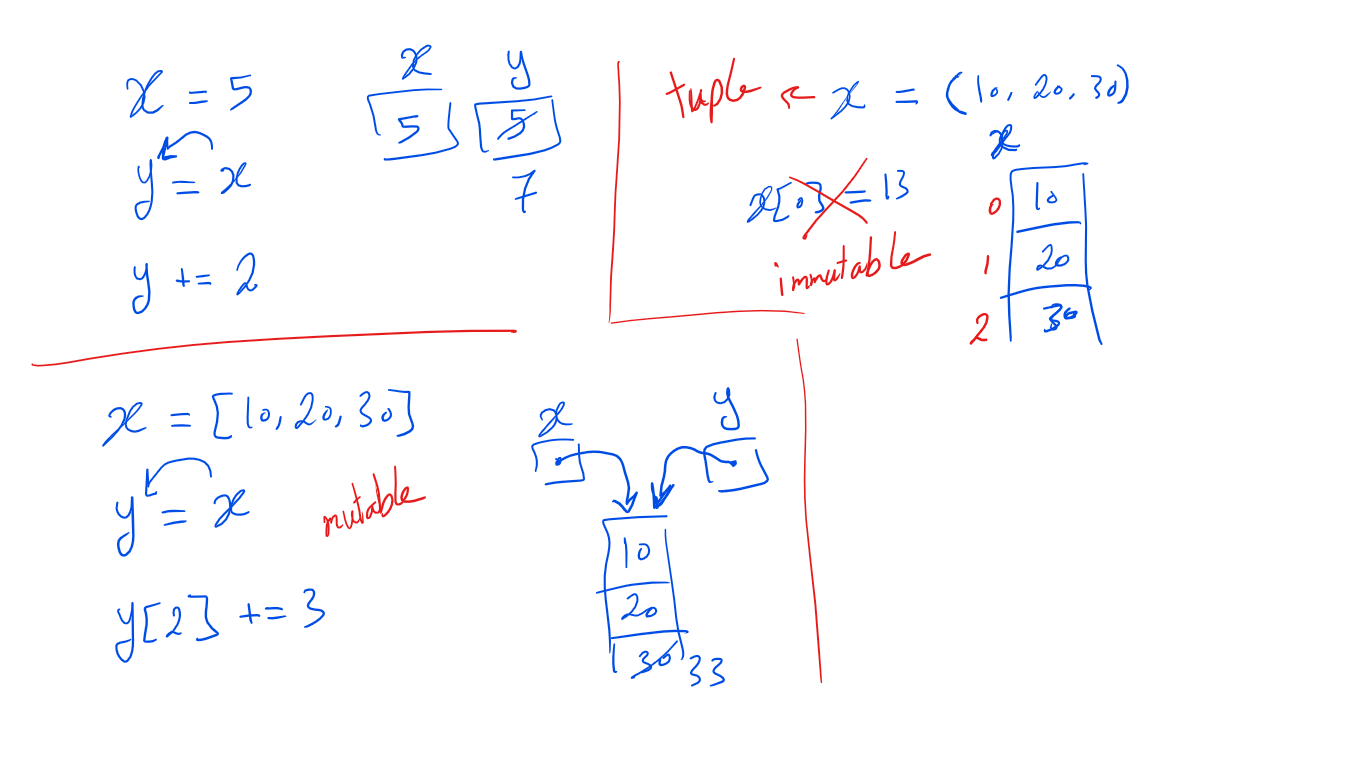 x = 5
y = x
y += 2
x y
5 5
7
tuple ← x = (10, 20, 30)
x
x[0] = 13
immutable
0 10
1 20
2 30
x = [10, 20, 30]
y = x
mutable
y[2] += 3
x y
10
20
30 33